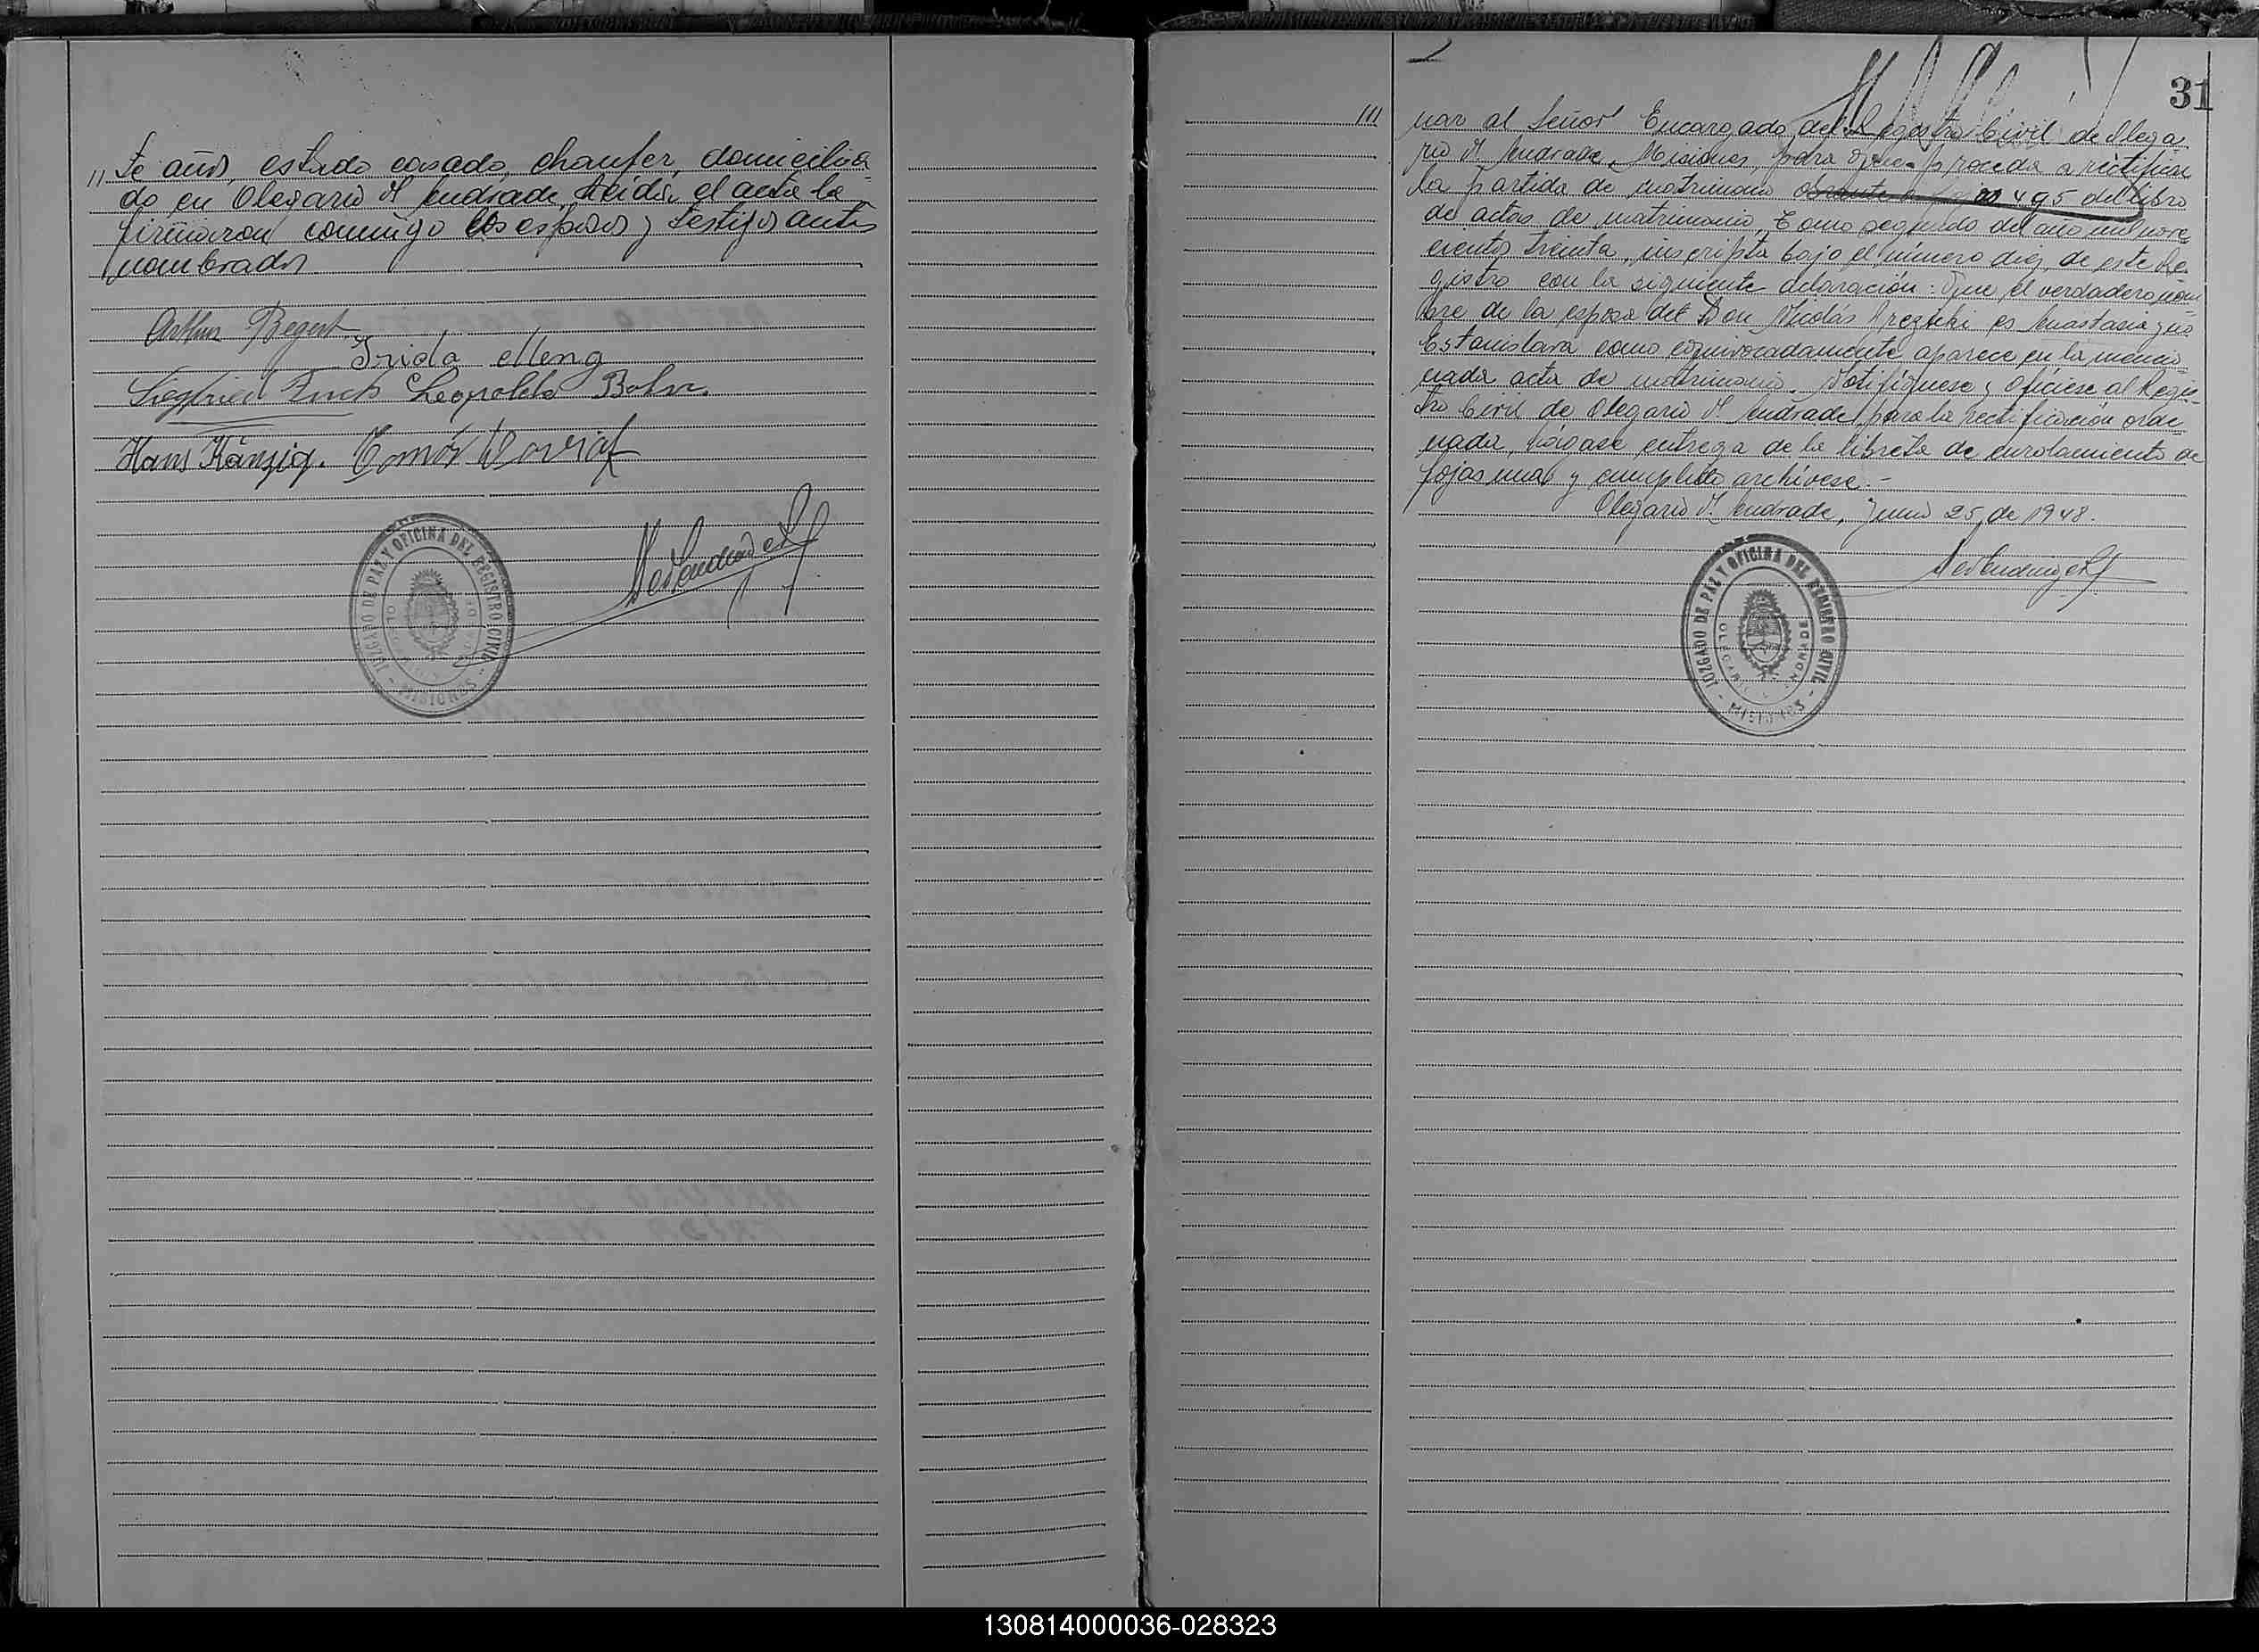 ,, te años, estado casado, chaufer, domicilia=
do en Olegario V. Andrade. Leida el acta la
firmaron conmigo los esposos y testigos antes
nombrados
Arthur Begert
Frida Meng
Siegfried Leopoldo Bohr.
Hans Känzig. Tomás
JUZGADO DE PAZ Y OFICINA DEL REGISTRO CIVIL
- MISIONES -
31
/// nar al Señor Encargado del Registro Civil de Olega
rio V. Andrade, Misiones, para que proceda a rectificar
la partida de matrimonio obrante a 495 del libro
de actas de matrimonio, Tomo segundo del año mil nove=
cientos treinta, inscripta bajo el número diez, de este Re
gistro con la siguiente aclaración: Que el verdadero nom
bre de la esposa del Don Nicolás es Anastasia y no
Estanislava como equivocadamente aparece en la mencio
nada acta de matrimonio. Notifíquese y ofíciese al Regis=
tro Civil de Olegario V. Andrade para la rectificación orde
nada, hágase entrega de la libreta de enrolamiento de
fojas una y cumplido archívese.-
Olegario V. Andrade, Junio 25, de 1948.
JUZGADO DE PAZ Y OFICINA DEL REGISTRO CIVIL
OLEGARIO V. ANDRADE
- MISIONES -
130814000036-028323